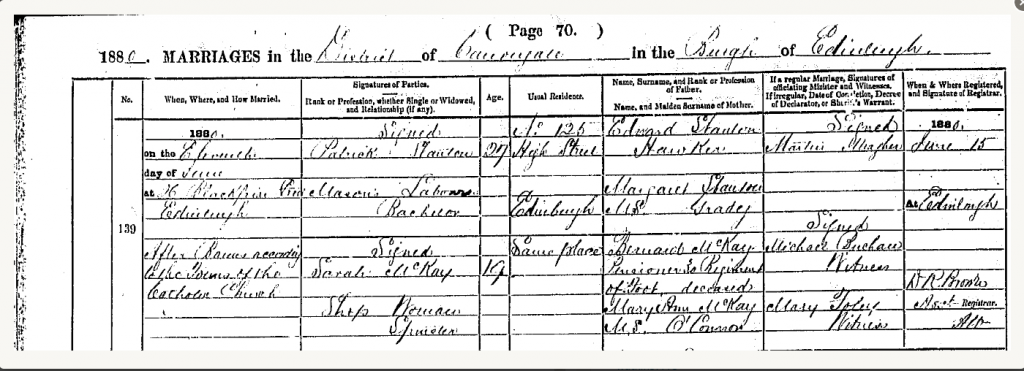 ( Page 70. )
1880. MARRIAGES in the District of Canongate in the Burgh of Edinburgh.
No.
When, Where, and How Married.
Signatures of Parties.
Rank or Profession, whether Single or Widowed, and Relationship (if any).
Age.
Usual Residence.
Name, Surname, and Rank or Profession of Father.
Name, and Maiden Surname of Mother.
If a regular Marriage, Signatures of officiating Minister and Witnesses.
If irregular, Date of Conviction, Decree of Declarator, or Sheriff's Warrant.
When & Where Registered, and Signature of Registrar.
139
1880.
on the Eleventh
day of June
at
Edinburgh
After Banns according
to the Forms of the
Catholic Church
Signed
Patrick Stanton
Mason's Labourer
Bachelor
Signed
Sarah McKay
Shop Woman
Spinster
27
19
No 125
High Street
Edinburgh
Same place
Edward Stanton
Hawker
Margaret Stanton
M.S. Grady
Bernard McKay
Pensioner
Regiment
of Foot, deceased
Mary Ann McKay
M.S. O'Connor
Signed
Martin Meagher
Signed
Michael
Witness
Mary Foley
Witness
1880.
June 15
At Edinburgh
Asst Registrar.